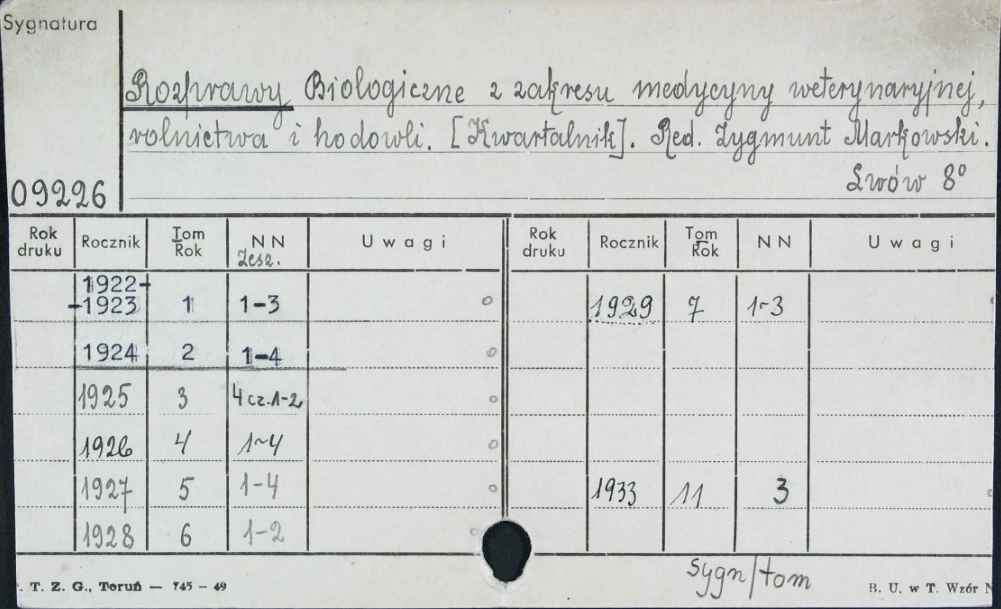 Sygnatura
Rozprawy Biologiczne z zakresu medycyny weterynaryjnej,
rolnictwa i hodowli. [Kwartalnik]. Red. Zygmunt Markowski.
Lwów 8°
09226
Rok druku Rocznik Tom Rok NN Zesz. Uwagi Rok druku Rocznik Tom Rok NN Uwagi
1922-
-1923 1 1-3 1929 7 1-3
1924 2 1-4
1925 3 4 cz. 1-2
1926 4 1-4
1927 5 1-4 1933 11 3
1928 6 1-2
sygn/tom
. T. Z. G., Toruń — 745 — 49 B. U. w T. Wzór N